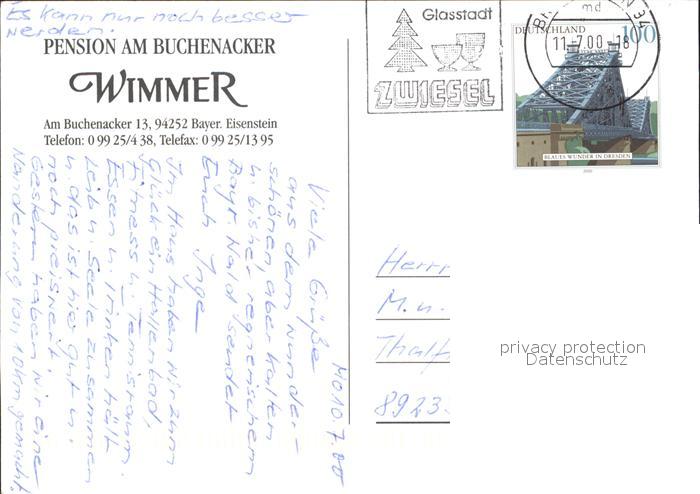 Es kann nur noch besser
werden.
PENSION AM BUCHENACKER
WIMMER
Am Buchenacker 13, 94252 Bayer. Eisenstein
Telefon: 0 99 25/4 38, Telefax: 0 99 25/13 95
Mo 10.7.00
Viele Grüße
aus dem wunder-
schönen, aber kalten
u. bisher regnerischem
Bayr. Wald sendet
Euch Inge
Im Haus haben wir zum
Glück ein Hallenbad,
Fitness u. Tennisraum.
Essen u. Trinken hält
Leib u. Seele zusammen
u. das ist hier gut u.
noch preiswert.
Gestern haben wir eine
Wanderung von 10km gemacht.
Glasstadt
ZWIESEL
md
11.-7.00-18
DEUTSCHLAND
100
BLAUES WUNDER IN DRESDEN
2000
Herrn
M. u.
Thalf
8923
privacy protection
Datenschutz